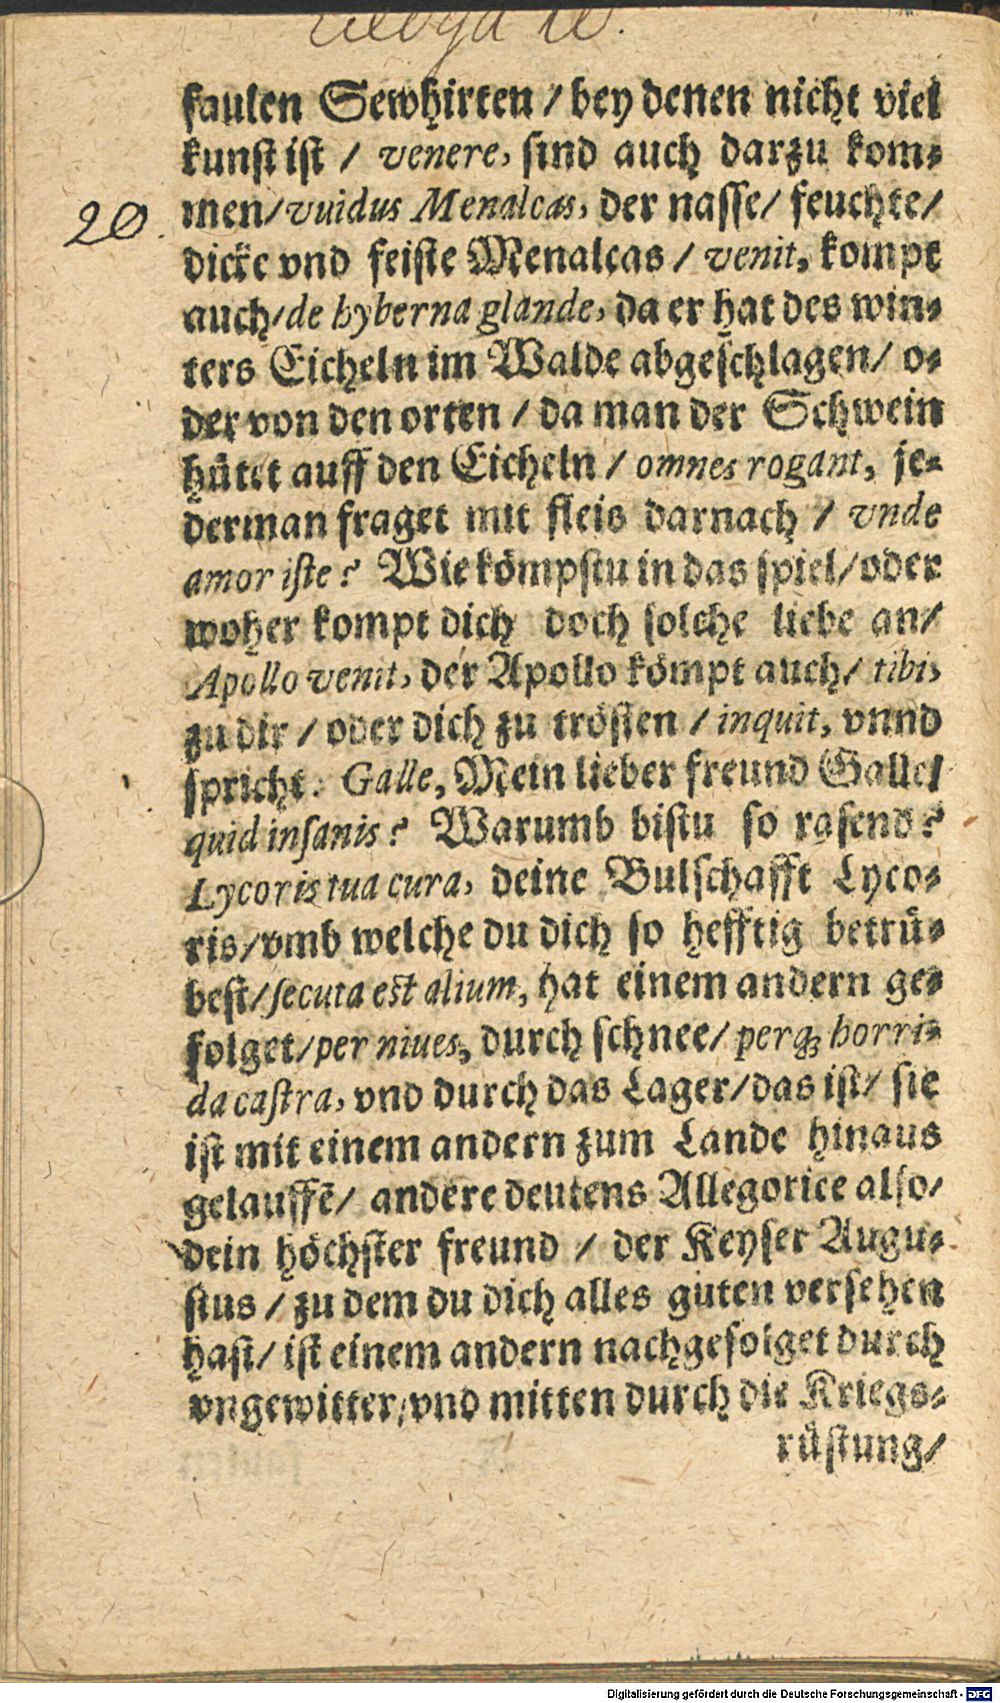 Ecloga 10.
faulen Sewhirten / bey denen nicht viel
kunst ist / venere, sind auch darzu kom-
20. men/ vuidus Menalcas, der nasse/ feuchte/
dicke vnd feiste Menalcas / venit, kompt
auch/ de hyberna glande, da er hat des win-
ters Eicheln im Walde abgeschlagen/ o-
der von den orten / da man der Schwein
hütet auff den Eicheln / omnes rogant, je-
derman fraget mit fleis darnach / vnde
amor iste? Wie kömpstu in das spiel/ oder
woher kompt dich doch solche liebe an/
Apollo venit, der Apollo kömpt auch/ tibi,
zu dir / oder dich zu trösten / inquit, vnnd
spricht: Galle, Mein lieber freund Galle/
quid insanis? Warumb bistu so rasend?
Lycoris tua cura, deine Bulschafft Lyco-
ris/ vmb welche du dich so hefftig betrü-
best/ secuta est alium, hat einem andern ge-
folget/ per niues, durch schnee/ perq; horri-
da castra, vnd durch das Lager/ das ist/ sie
ist mit einem andern zum Lande hinaus
gelauffē/ andere deutens Allegorice also/
dein höchster freund / der Keyser Augu-
stus / zu dem du dich alles guten versehen
hast/ ist einem andern nachgefolget durch
vngewitter/ vnd mitten durch die Kriegs-
rüstung/
Digitalisierung gefördert durch die Deutsche Forschungsgemeinschaft - DFG